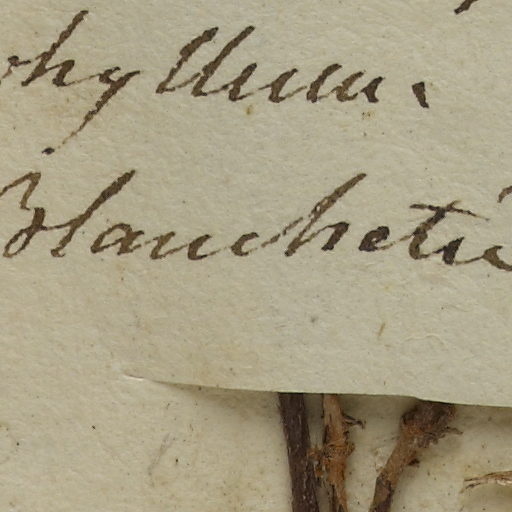 phyllum.
Blancheti